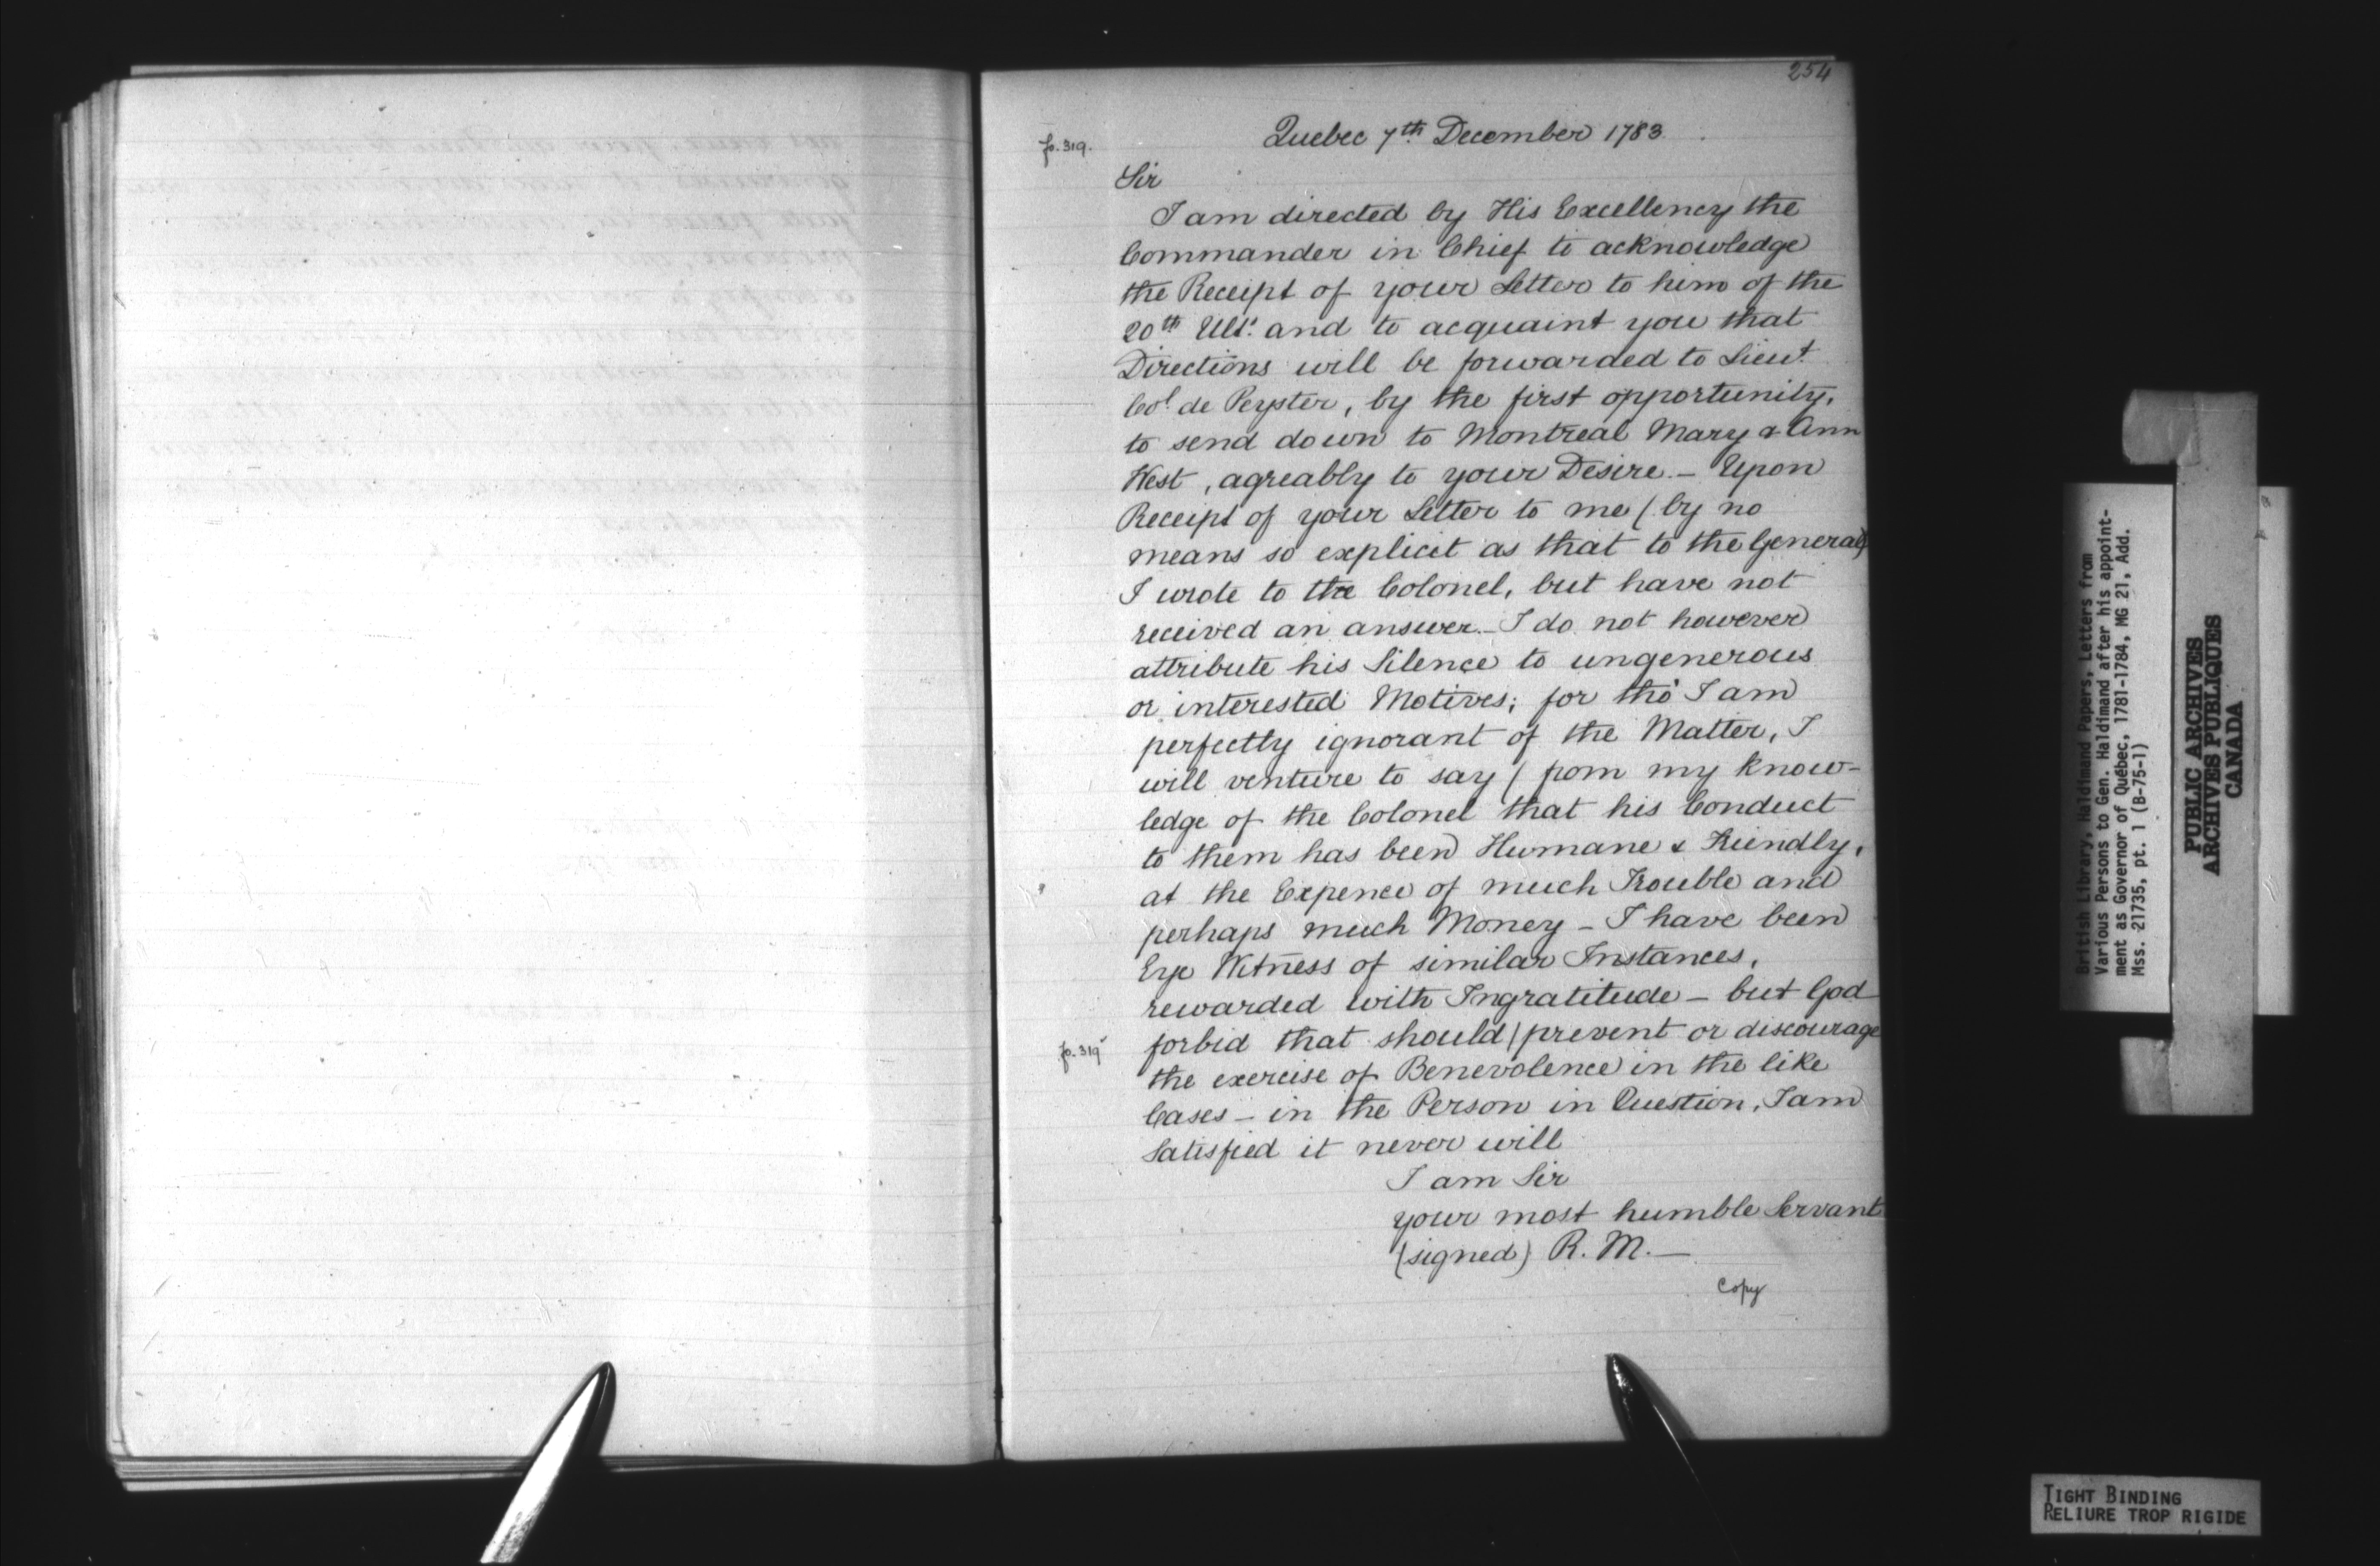 254
fo. 319.
Quebec 7th December 1783.
Sir
I am directed by His Excellency the
Commander in Chief to acknowledge
the Receipt of your Letter to him of the
20th Ult: and to acquaint you that
Directions will be forwarded to Lieut.
Col de Peyster, by the first opportunity,
to send down to Montreal Mary & Ann
West, agreably to your Desire. - Upon
Receipt of your Letter to me ( by no
means so explicit as that to the General)
I wrote to the Colonel, but have not
received an answer. - I do not however
attribute his Silence to ungenerous
or interested Motives; for tho' I am
perfectly ignorant of the Matter, I
will venture to say ( from my know-
ledge of the Colonel that his Conduct
to them has been Humane & Friendly,
at the Expence of much Trouble and
perhaps much Money - I have been
Eye Witness of similar Instances,
rewarded with Ingratitude - but God
forbid that should / prevent or discourage
fo. 319v
the exercise of Benevolence in the like
Cases - in the Person in Question, I am
Satisfied it never will
I am Sir
your most humble Servant
(signed) R. M. —
Copy
British Library, Haldimand Papers, Letters from
Various Persons to Gen. Haldimand after his appoint-
ment as Governor of Québec, 1781-1784, MG 21, Add.
Mss. 21735, pt. 1 (B-75-1)
PUBLIC ARCHIVES
ARCHIVES PUBLIQUES
CANADA
TIGHT BINDING
RELIURE TROP RIGIDE